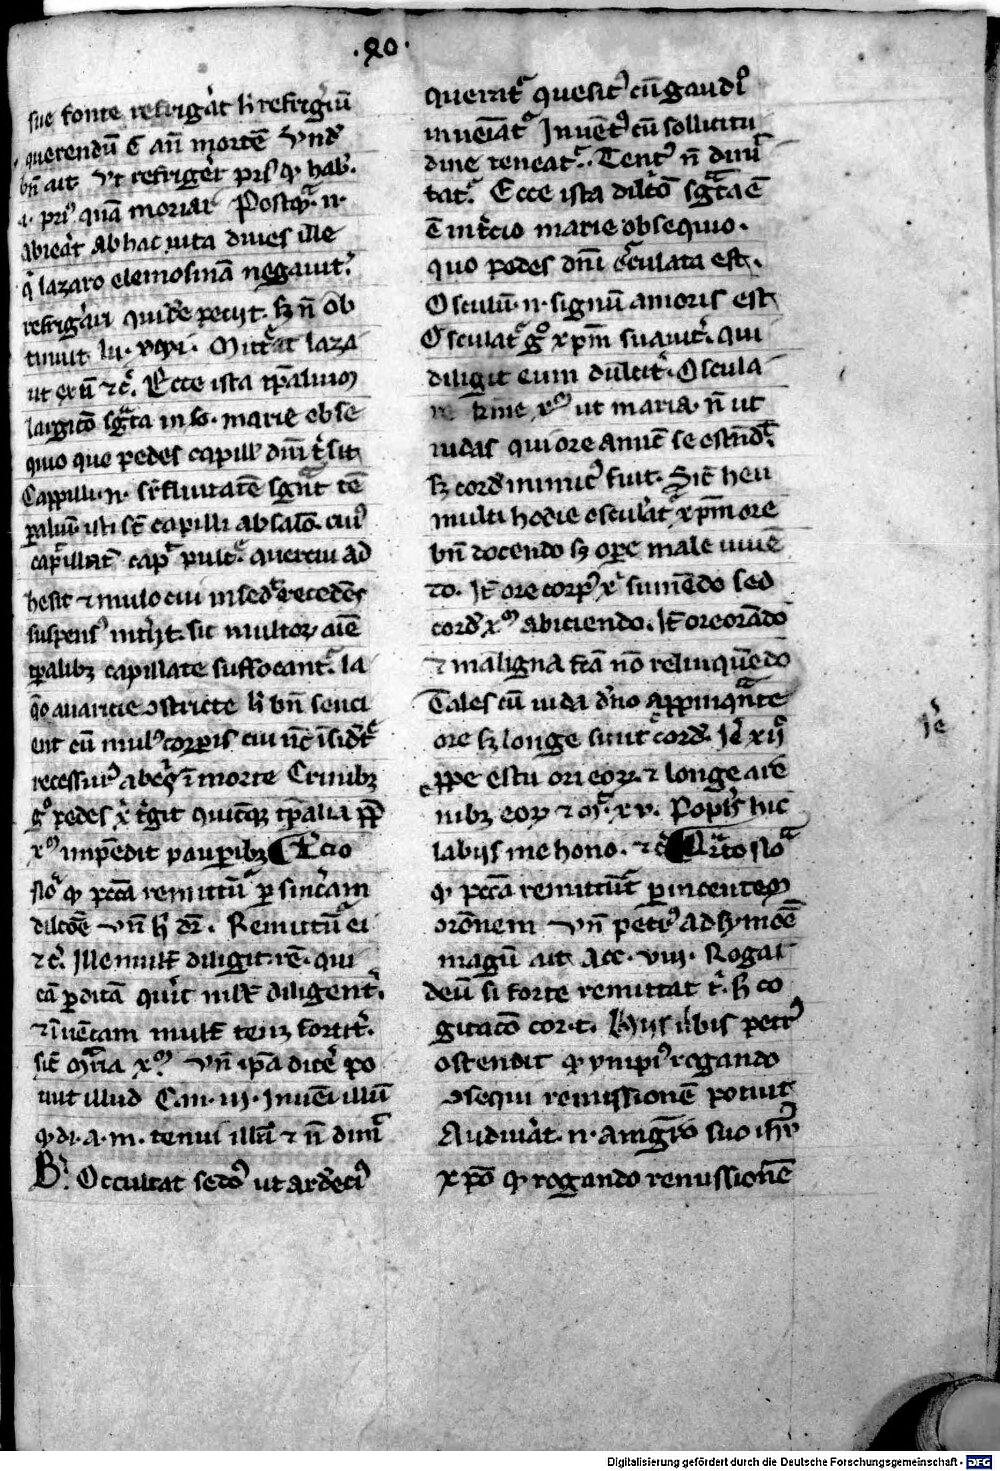 .90.
sue fonte refrigat h̄ refrigiū
querendū ē añ mortē vnd̄
bn̄ ait vt refrigeř priꝰ qͣ hab.
a. priꝰ quā moriar Postqͣ. n.
abieat ab hac uita diues ille
q̇ lazaro elemosinā negauit.
refrigari quidē petijt. sꝫ nō ob
tinuit. lu. xvi. Mittat laza
ut ex ū ⁊c̄. Ecce ista tp̄aliuꝫ
largicō sgͣta in s. marie obse
quio que pedes capill dn̄i t̓sit
Cappilli. n. suꝑfluitatē sgnͣt tē
paliū isti sc̄ capilli absalō. cuiꝰ
capillat capͣ pulcͣ. quercui ad
hesit ⁊ mulo cui insedͣt recedēs
suspensꝰ int̓ijt. sic multoꝝ aīe
tp̄alibꝫ capillate suffocantͣ. la
q̊ auaricie ɔstricte h̄ bn̄ senci
ent cū mulꝰ corꝑis cui nc̄ īsidͣt
recessurꝰ abeis ī morte Crinibꝫ
gͦ pedes x̓ t̓git quicūqꝫ tp̄alia ꝓpͭ
xᵐ impēdit pauꝑibꝫ ¶ Tcio
nͦ qͣ pcc̄a remittū ꝑ sincam
dilcōē vn̄ h̄ dr̄. Remittū ei
⁊c̄. Ille mult diligit rē. qui
eā ꝑditā quīt mult diligent̓.
⁊ īuētam mult tenꝫ fortit̓.
sic Mͣria xᵐ. vn̄ ip̄a dicē po
tuit illud Can. iii. Inuēi illū
qͣ di. a. m. tenui illū ⁊ n̄ dimi
B. Occultat sedꝰ ut ardēciꝰ
queratͣ quesitꝰ cū gaudiͦ
inueīatͣ Inuētꝰ cū sollicitu
dine teneatͣ. Tentꝰ n̄ dimi
tatͣ. Ecce ista dilcō sgͣta ē
ē in t̓cio marie obsequio.
quo pedes dn̄i osculata est.
Osculū. n. signū amoris est
Osculatͣ gͦ xp̄m suauit̓. qui
diligit eum dulcit̓. Oscula
re hͦmīe xᵐ ut maria. n̄ ut
iudas qui ore amicū se estēdͭ
sꝫ corde inimicꝰ fuit. Sic heu
multi hodie osculātͣ xp̄m ore
bn̄ docendo sꝫ oꝑe male uiuē
do. Itē ore corpꝰ x̓ sumēdo sed
cordͤ xᵐ abiciendo. Itē ore orādo
⁊ maligna fc̄a nō relinquēdo
Tales cū iuda dn̄o appinqͣnt
ore sꝫ longe sunt cordͤ. Ie xii
ꝓpe es tu ori eoꝝ. ⁊ longe a re
nibꝫ eoꝝ ⁊ Mͭ. xv. Popls hic
labijs me hono. ⁊c̄ ¶ Qͣrto nͦ
qͣ pcc̄a remittūt ꝑ incentem
orōnem vn̄ petrꝰ ad symōē
magū ait Acc. viii. Roga
deū si forte remittat t̓. h̄ co
gitacō cor. t. Hijs v̓bis petrꝰ
ostendit qͣ ympiꝰ rogando
ɔsequi remissionē potuit
Audiuāt. n. a mgr̄o suo ihū
xpō qͣ rogando remissionē
Ie
Digitalisierung gefördert durch die Deutsche Forschungsgemeinschaft - DFG